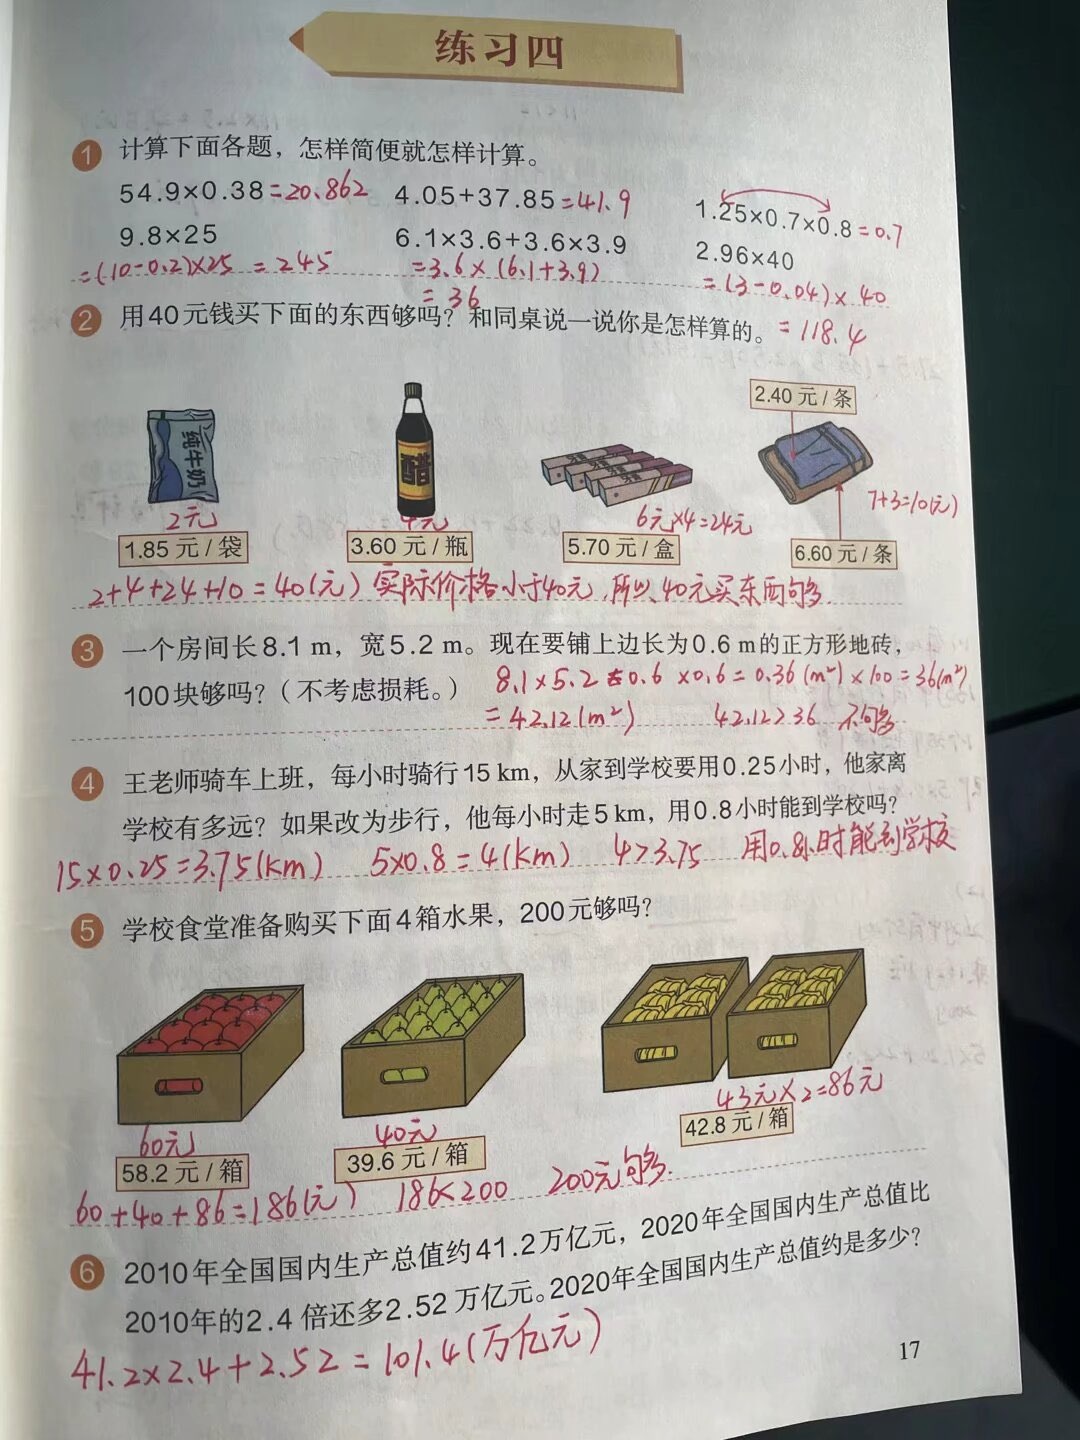 练习四
1 计算下面各题，怎样简便就怎样计算。
54.9×0.38=20.862 4.05+37.85=41.9 1.25×0.7×0.8=0.7
9.8×25 6.1×3.6+3.6×3.9 2.96×40
=(10-0.2)×25 =245 =3.6×(6.1+3.9) =(3-0.04)×40
=36 =118.4
2 用40元钱买下面的东西够吗？和同桌说一说你是怎样算的。
2.40元/条
纯牛奶 醋
2元 4元 6元×4=24元 7+3=10(元)
1.85元/袋 3.60元/瓶 5.70元/盒 6.60元/条
2+4+24+10=40(元) 实际价格小于40元,所以,40元买东西够.
3 一个房间长8.1 m，宽5.2 m。现在要铺上边长为0.6 m的正方形地砖，
100块够吗？（不考虑损耗。） 8.1×5.2 0.6×0.6=0.36(m²)×100=36(m²)
=42.12(m²) 42.12>36 不够
4 王老师骑车上班，每小时骑行15 km，从家到学校要用0.25小时，他家离
学校有多远？如果改为步行，他每小时走5 km，用0.8小时能到学校吗？
15×0.25=3.75(km) 5×0.8=4(km) 4>3.75 用0.8小时能到学校
5 学校食堂准备购买下面4箱水果，200元够吗？
60元 40元 43元×2=86元
58.2元/箱 39.6元/箱 42.8元/箱
60+40+86=186(元) 186<200 200元够.
6 2010年全国国内生产总值约41.2万亿元，2020年全国国内生产总值比
2010年的2.4倍还多2.52万亿元。2020年全国国内生产总值约是多少？
41.2×2.4+2.52=101.4(万亿元)
17